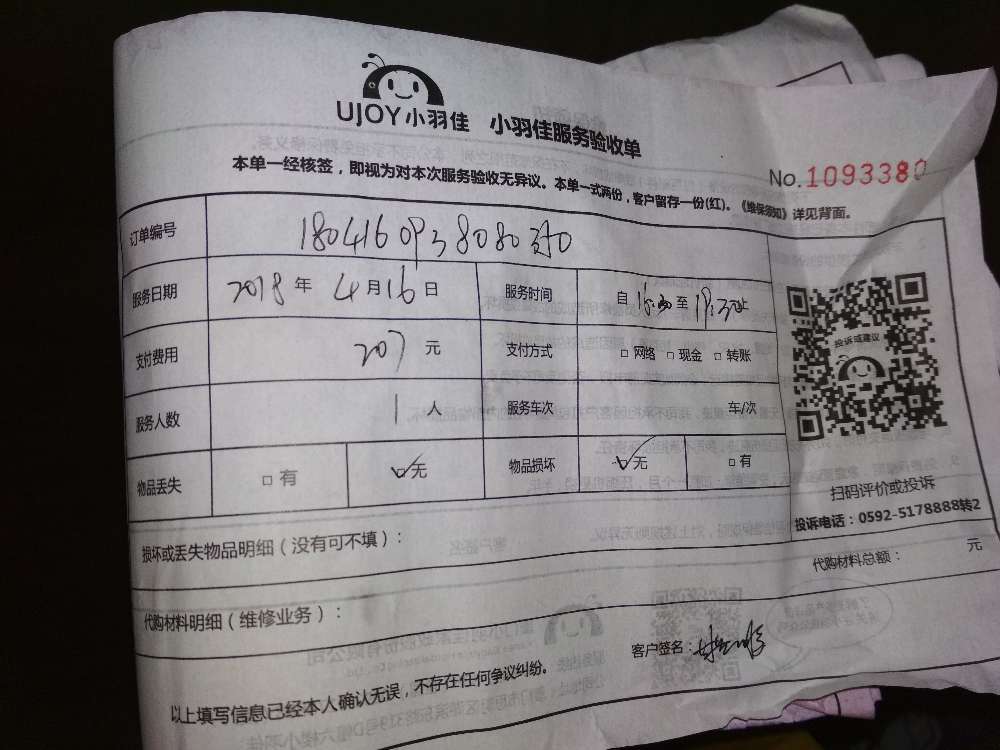 UJOY小羽佳 小羽佳服务验收单
No.1093380
本单一经核签，即视为对本次服务验收无异议。本单一式两份，客户留存一份(红)。《维保须知》详见背面。
订单编号
服务日期 2018年4月16日 服务时间 自 至 19:30止
支付费用 207元 支付方式 □网络 □现金 □转账
服务人数 1人 服务车次 车/次
物品丢失 □有 ☑无 物品损坏 ☑无 □有
投诉或建议
扫码评价或投诉
投诉电话：0592-5178888转2
损坏或丢失物品明细（没有可不填）：
代购材料总额： 元
代购材料明细（维修业务）：
客户签名：
以上填写信息已经本人确认无误，不存在任何争议纠纷。